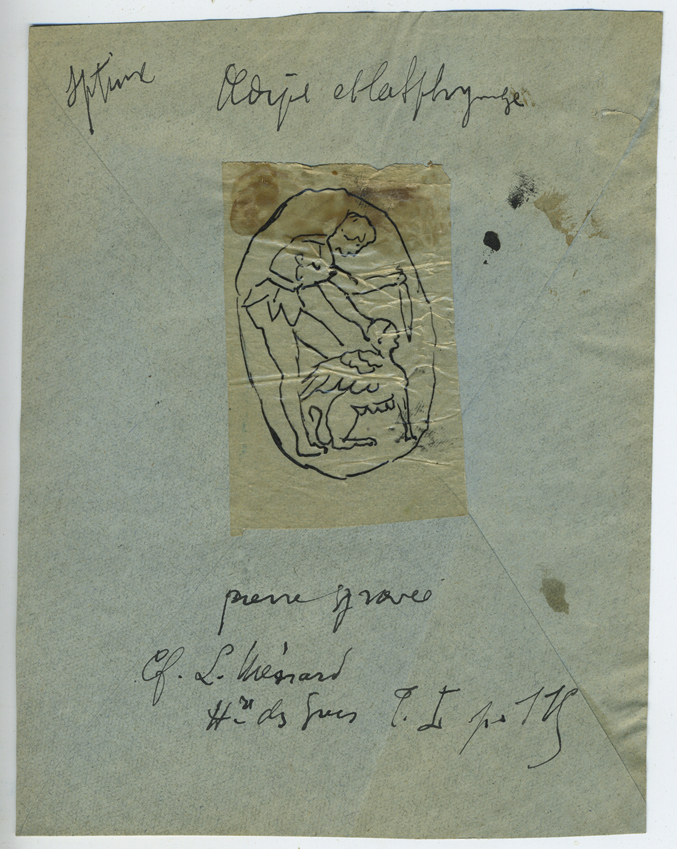 Sphinx
Œdipe et la Sphynge
pierre gravée
Cf. L. Ménard
H.re des Grecs T. I p.